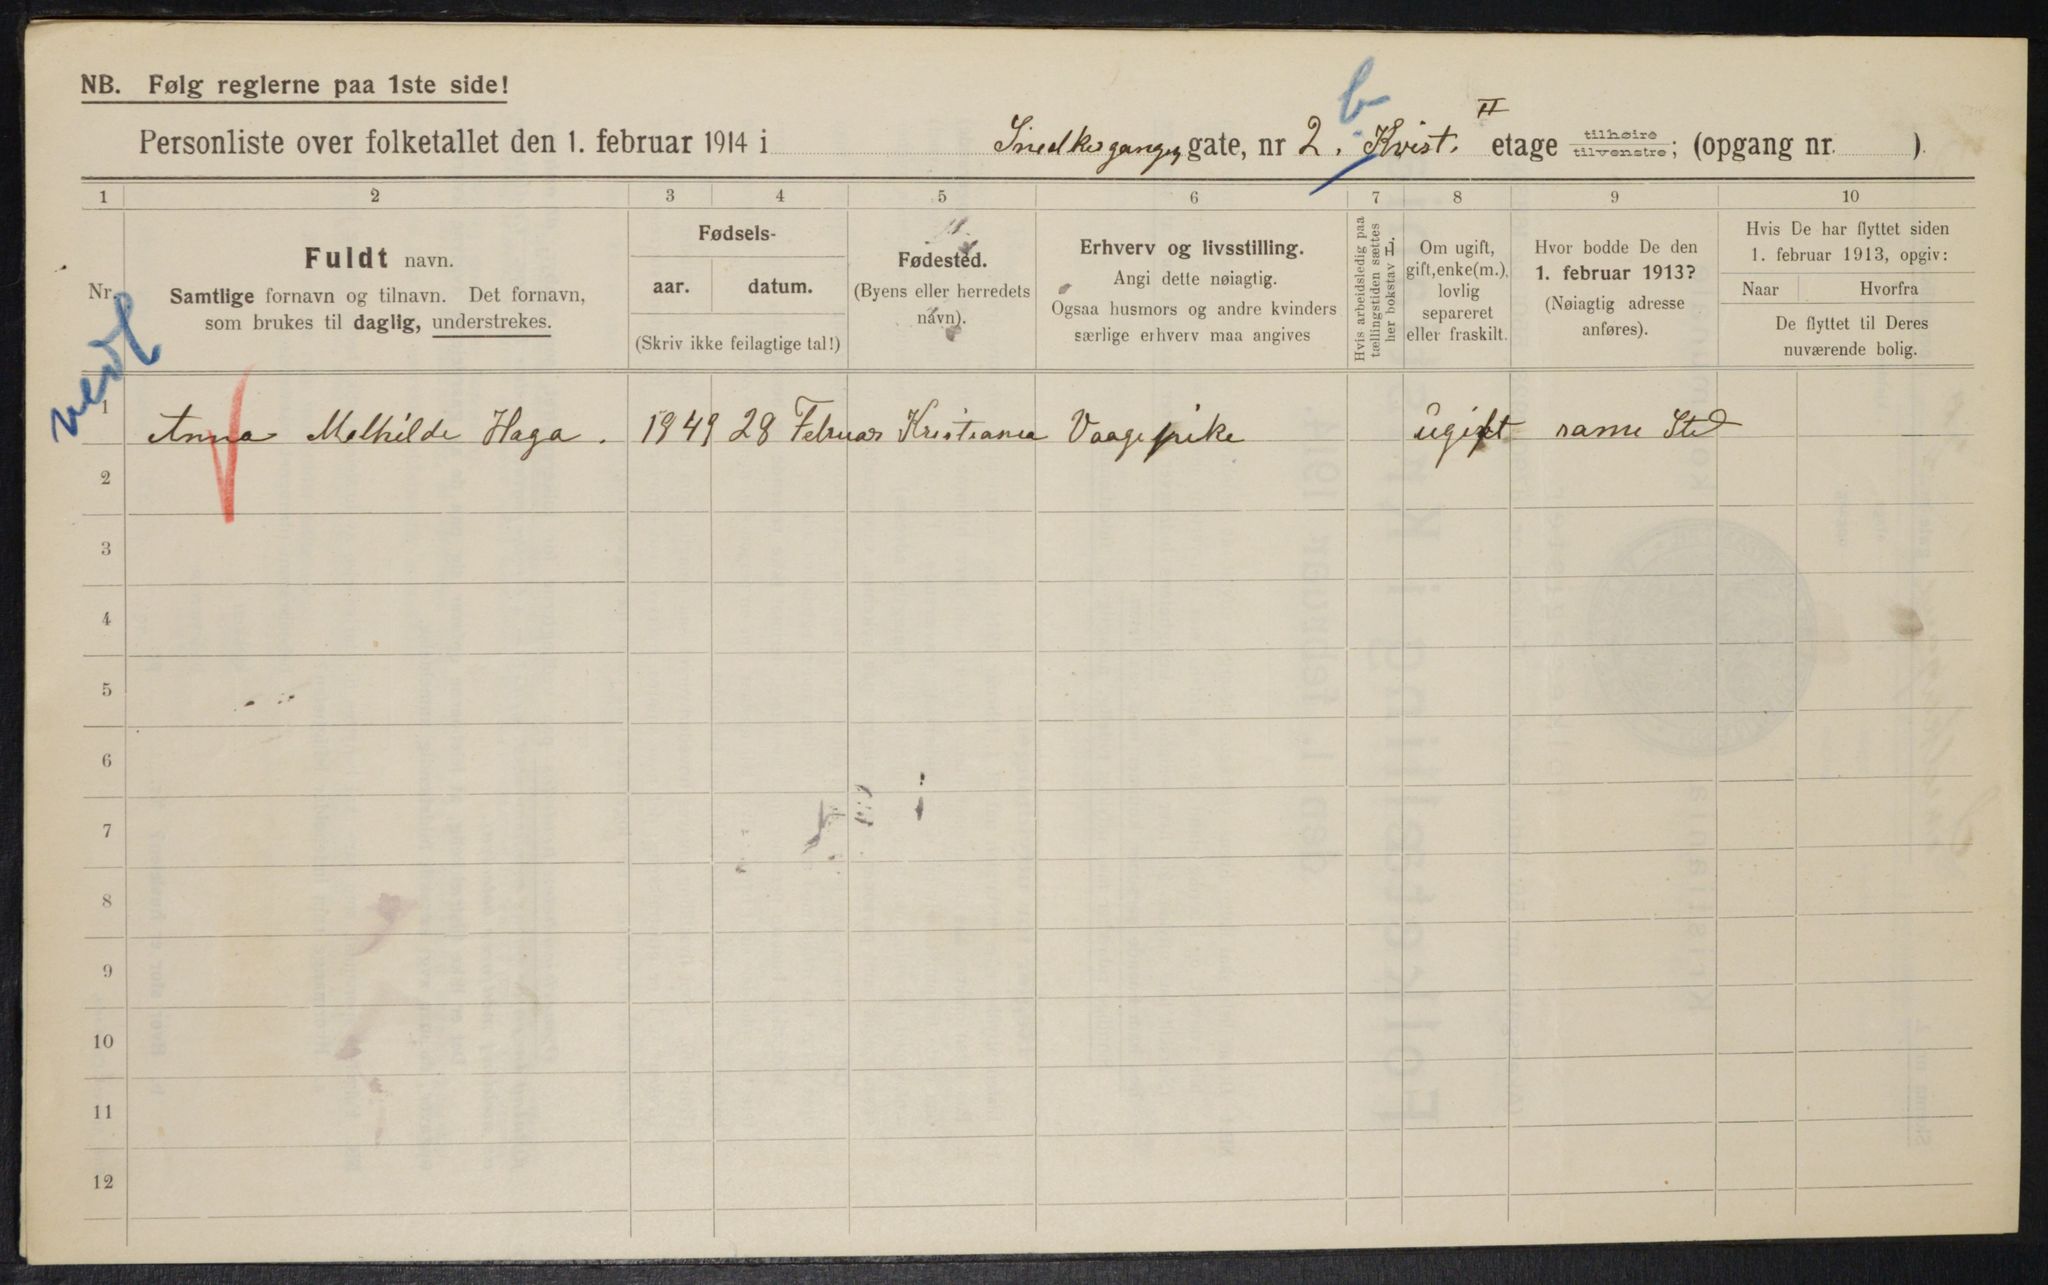 NB. Følg reglerne paa 1ste side!
b
II
Personliste over folketallet den 1. februar 1914 i Snedkergangen gate, nr 2. Kvist. etage tilhøire tilvenstre; (opgang nr. ).
1 2 3 4 5 6 7 8 9 10
Nr.
Fuldt navn.
Samtlige fornavn og tilnavn. Det fornavn,
som brukes til daglig, understrekes.
Fødsels-
aar. datum.
(Skriv ikke feilagtige tal!)
Fødested.
(Byens eller herredets
navn).
Erhverv og livsstilling.
Angi dette nøiagtig.
Ogsaa husmors og andre kvinders
særlige erhverv maa angives
Hvis arbeidsledig paa
tællingstiden sættes
her bokstav L.
Om ugift,
gift, enke(m.),
lovlig
separeret
eller fraskilt.
Hvor bodde De den
1. februar 1913?
(Nøiagtig adresse
anføres).
Hvis De har flyttet siden
1. februar 1913, opgiv:
Naar Hvorfra
De flyttet til Deres
nuværende bolig.
1 Anna Mathilde Haga. 1949 28 Februar Kristiania Vaagepike ugift samme Sted
2
3
4
5
6
7
8
9
10
11
12